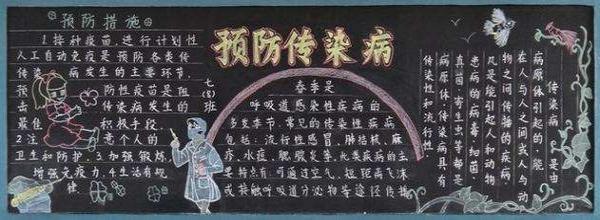 预防措施
1接种疫苗,进行计划性
人工自动免疫是预防各类传
传染 病发生的主要环节,
预 防性疫苗是阻
击 传染病发生的
最佳 积极手段.
2注 意个人的
卫生和防护.3加强锻炼
增强免疫力.4生活有规
律
七(8)班
预防传染病
春季是
呼吸道感染性疾病的
多发季节,常见的传染性疾病
包括:流行性感冒、肺结核、麻
疹、水痘、腮腺炎等,此类疾病的主
要特点:可通过空气、短距离飞沫
或接触呼吸道分泌物等途径传播
传染病是由
病原体引起的,能
在人与人之间或人与动
物之间传播的疾病
凡是能引起人和动物
患病的病毒、细菌、
真菌、寄生虫等都是
病原体.传染病具有
传染性和流行性